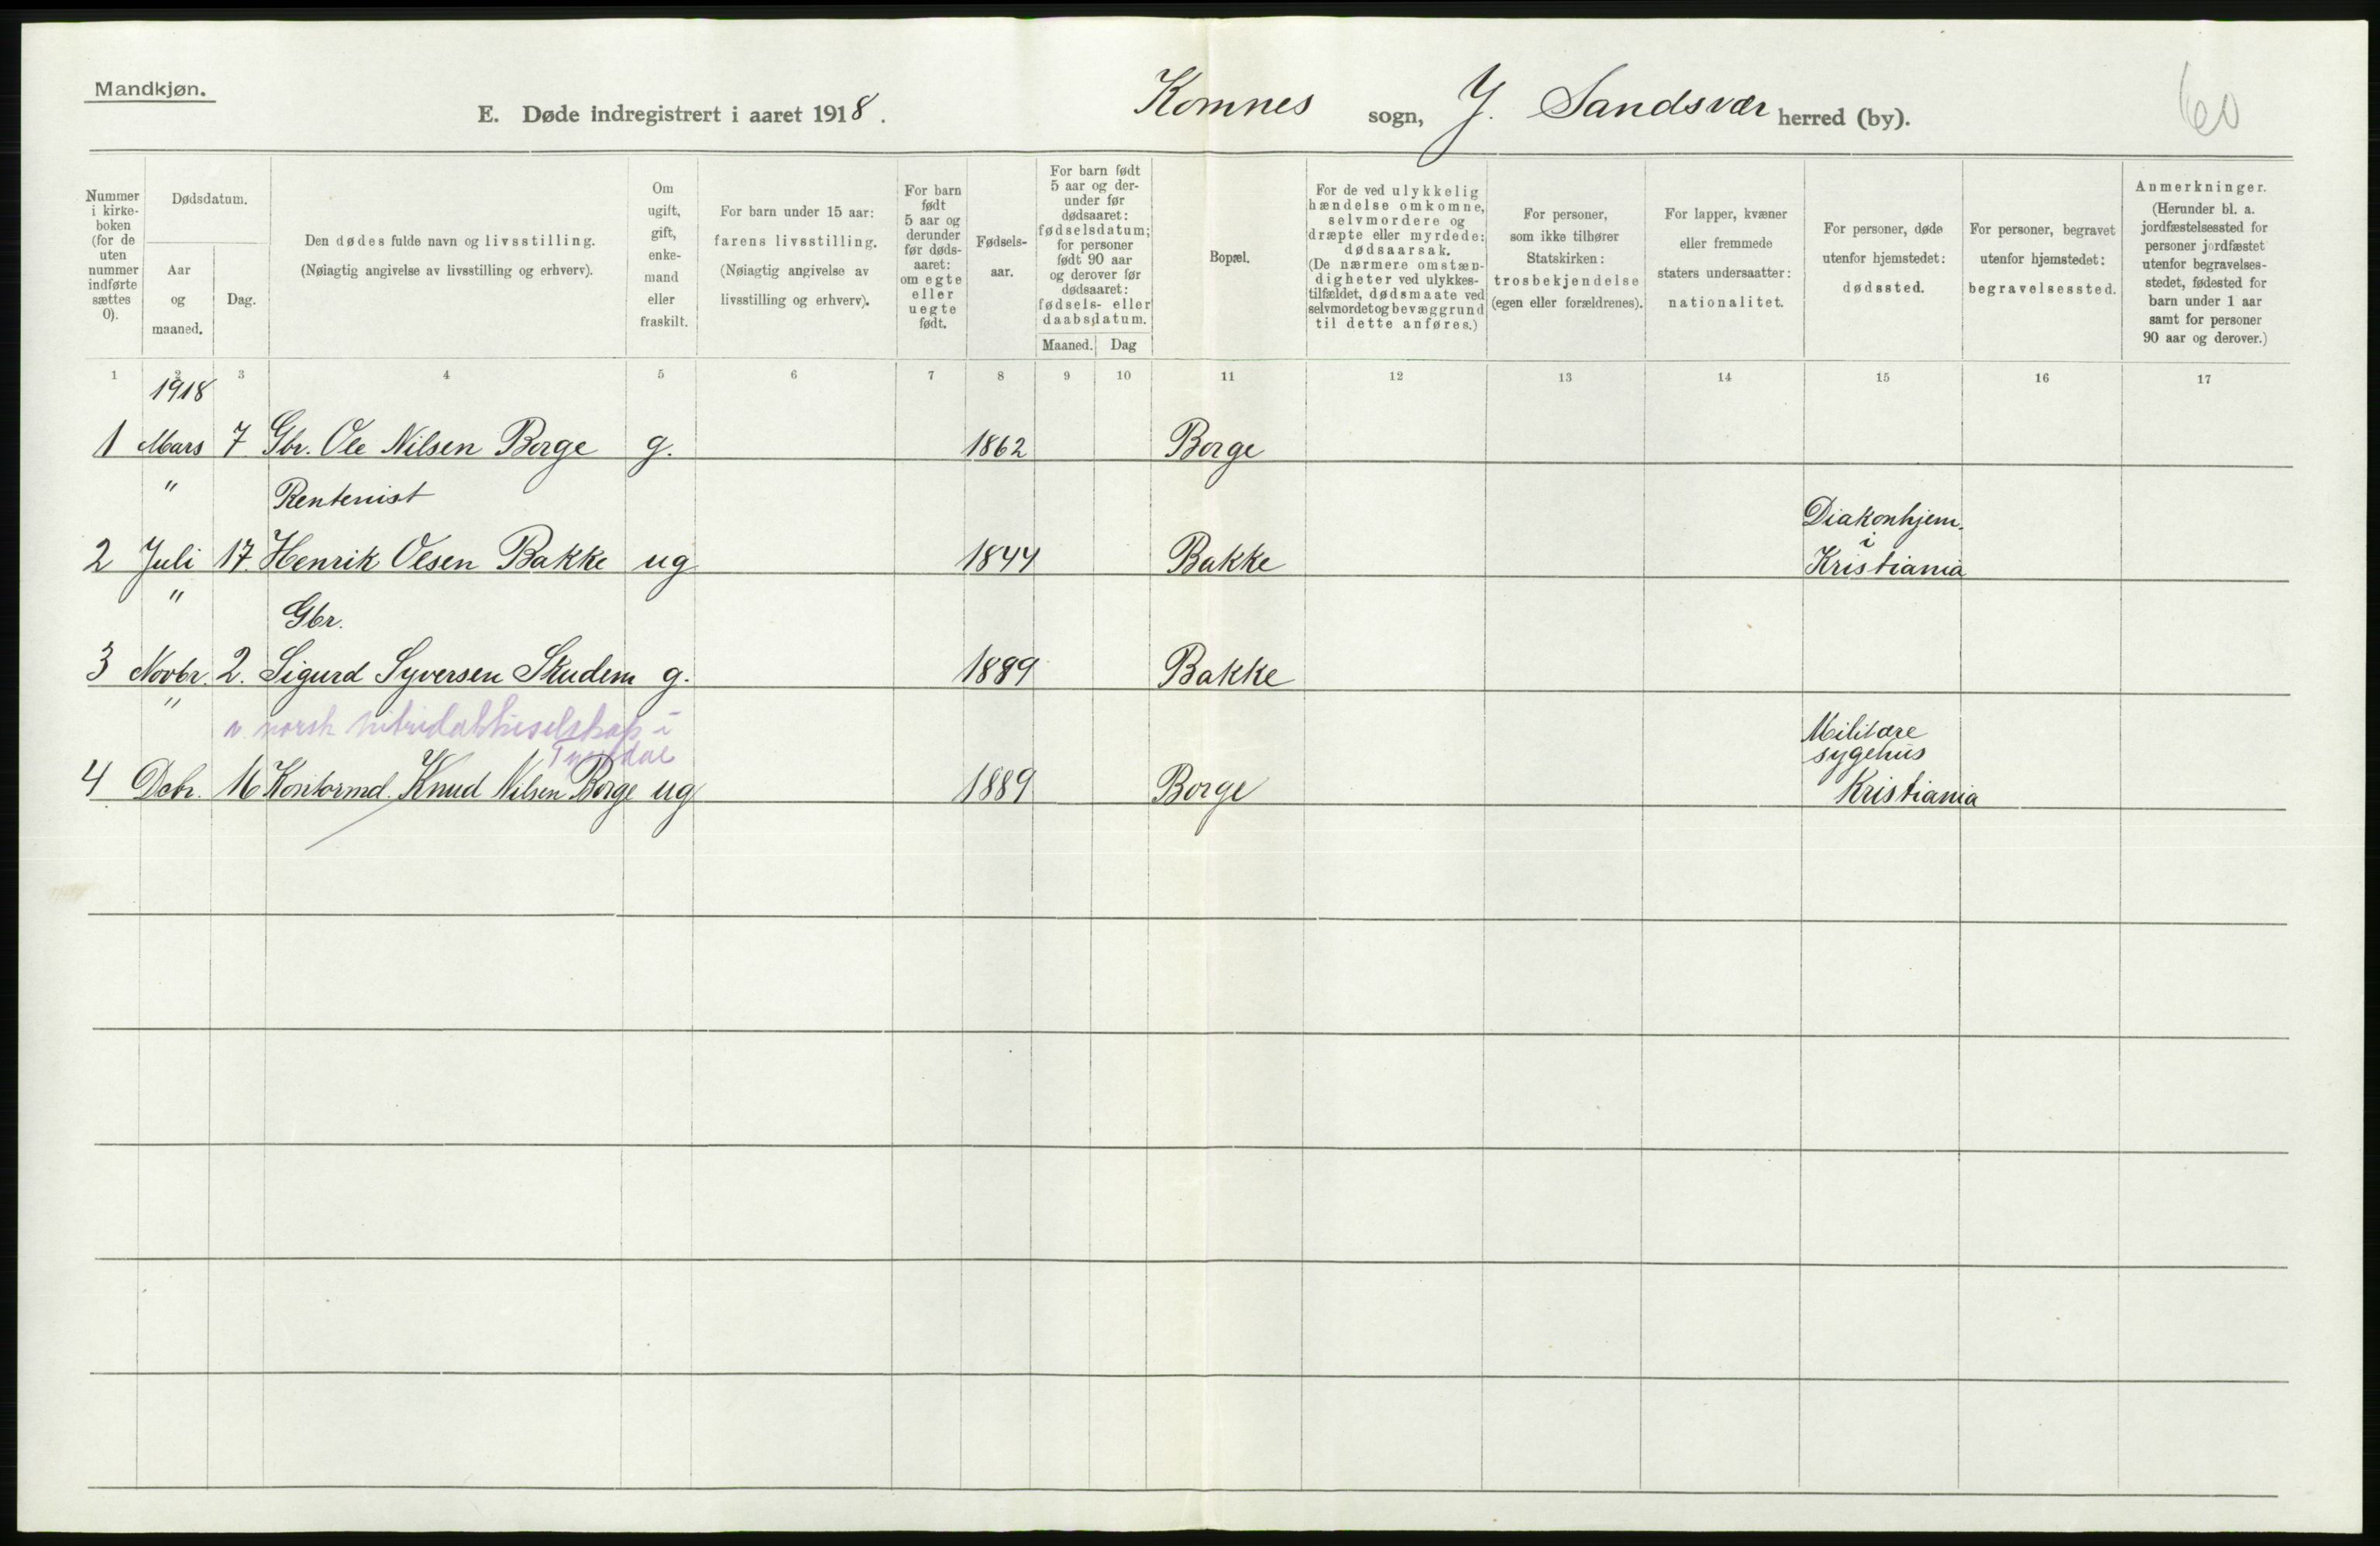 Mandkjøn.
E. Døde indregistrert i aaret 1918.
Komnes sogn, Y. Sandsvær herred (by).
60
Nummer i kirke-boken (for de uten nummer indførte sættes 0).
Dødsdatum.
Aar og maaned.
Dag.
Den dødes fulde navn og livsstilling.
(Nøiagtig angivelse av livsstilling og erhverv).
Om ugift, gift, enke-mand eller fraskilt.
For barn under 15 aar:
farens livsstilling.
(Nøiagtig angivelse av livsstilling og erhverv).
For barn født 5 aar og derunder før døds-aaret: om egte eller uegte født.
Fødsels-aar.
For barn født 5 aar og der-under før dødsaaret: fødselsdatum; for personer født 90 aar og derover før dødsaaret: fødsels- eller daabsdatum.
Maaned. Dag
Bopæl.
For de ved ulykkelig hændelse omkomne, selvmordere og dræpte eller myrdede: dødsaarsak.
(De nærmere omstæn-digheter ved ulykkes-tilfældet, dødsmaate ved selvmordet og bevæggrund til dette anføres.)
For personer, som ikke tilhører Statskirken: trosbekjendelse (egen eller forældrenes).
For lapper, kvæner eller fremmede staters undersaatter: nationalitet.
For personer, døde utenfor hjemstedet: dødssted.
For personer, begravet utenfor hjemstedet: begravelsessted.
Anmerkninger.
(Herunder bl. a. jordfæstelsessted for personer jordfæstet utenfor begravelses-stedet, fødested for barn under 1 aar samt for personer 90 aar og derover.)
1 2 3 4 5 6 7 8 9 10 11 12 13 14 15 16 17
1918
1 Mars 7 Gbr. Ole Nilsen Borge g. 1862 Borge
" Rentenist Diakonhjem. i
2 Juli 17. Henrik Olsen Bakke ug 1844 Bakke Kristiania
" Gbr.
3 Novbr. 2. Sigurd Syversen Skudem g. 1889 Bakke
" norsk i Militære sygehus
4 Debr. 16 Kontormd. Knud Nilsen Borge ug 1889 Borge Kristiania